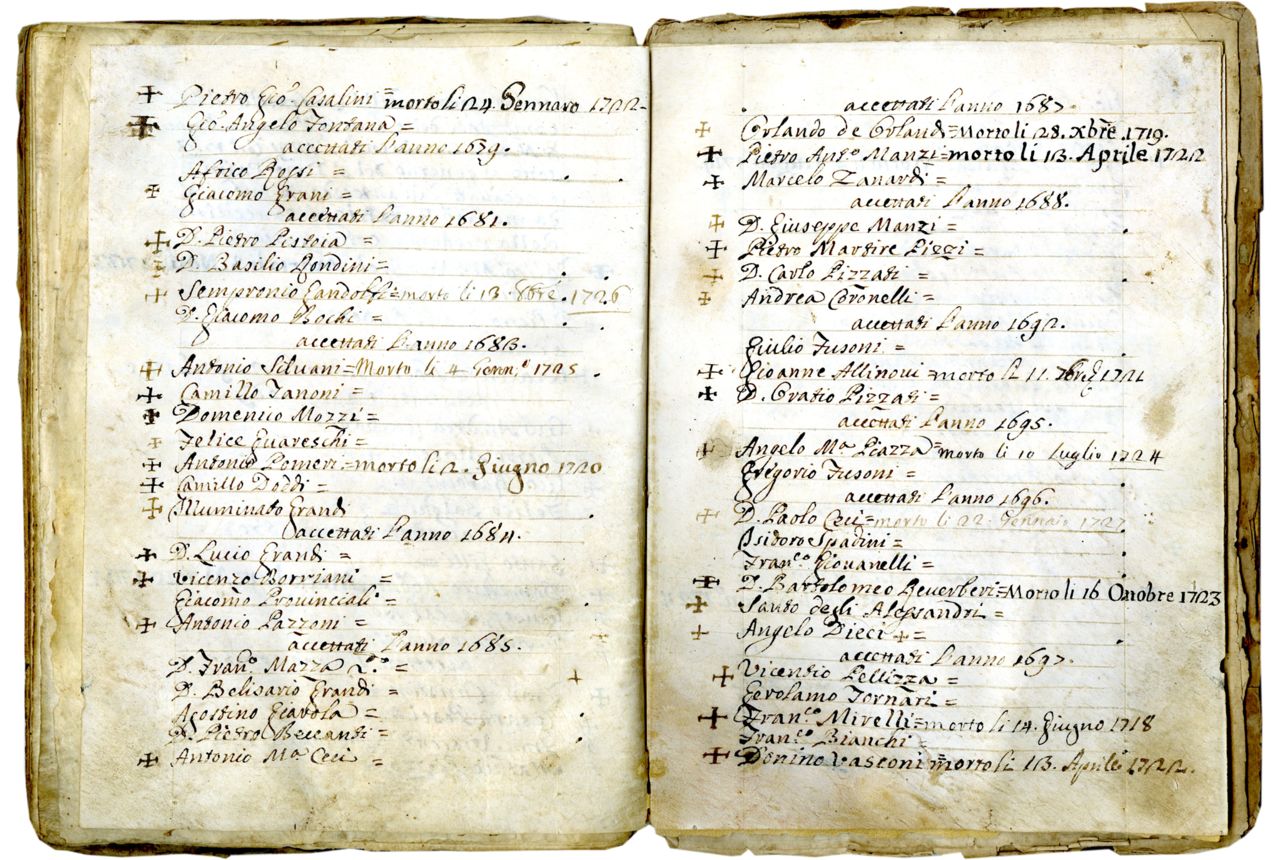 Pietro Gio. Casalini = morto li 24. Gennaro 1722
Gio. Angelo Fontana =
accettati l'anno 1679.
Africo Rossi =
Giacomo Grani =
accettati l'anno 1681.
D. Pietro Pistoia =
D. Basilio Rondini =
Sempronio Gandolfi = morto li 13. 8bre. 1726
D. Giacomo Bochi =
accettati l'anno 1683.
Antonio Silvani = Morto li 4 Genn.o 1725
Camillo Zanoni =
Domenico Mozzi =
Felice Guareschi =
Antonio Pomeri = morto li 2. Giugno 1720
Camillo Doddi =
Illuminato Grandi
accettati l'anno 1684.
D. Lucio Grandi =
Vicenzo Borriani =
Giacomo Provinciali =
Antonio Pazzoni =
accettati l'anno 1685.
D. Fran.o Mazza =
D. Belisario Grandi =
Agostino Giavola =
D. Pietro Beccanti =
Antonio M.a Ceci =
accettati l'anno 1687.
Orlando de Orlandi = Morto li 28. Xbre. 1719.
Pietro Ant.o Manzi = morto li 13. Aprile 1722
Marcelo Zanardi =
accettati l'anno 1688.
D. Giuseppe Manzi =
Pietro Martire Pizzi =
D. Carlo Pizzati =
Andrea Coronelli =
accettati l'anno 1692.
Giulio Fusoni =
Gioanne Allinovi = morto li 11. 7bre 1721
D. Oratio Pizzati =
accettati l'anno 1695.
Angelo M.a Piazza = morto li 10 Luglio 1724
Gregorio Fusoni =
accettati l'anno 1696.
D. Paolo Ceci = morto li 22. Gennaio 1727
Isidoro Spadini =
Fran.co Giovanelli =
D. Bartolomeo Reverberi = Morto li 16 Ottobre 1723
Santo degli Alessandri =
Angelo Dieci + =
accettati l'anno 1697.
Vicentio Pellizza =
Gerolamo Fornari =
Fran.co Mirelli = morto li 14. Giugno 1718
Fran.co Bianchi =
Donino Vasconi = morto li 13. Aprile 1722.